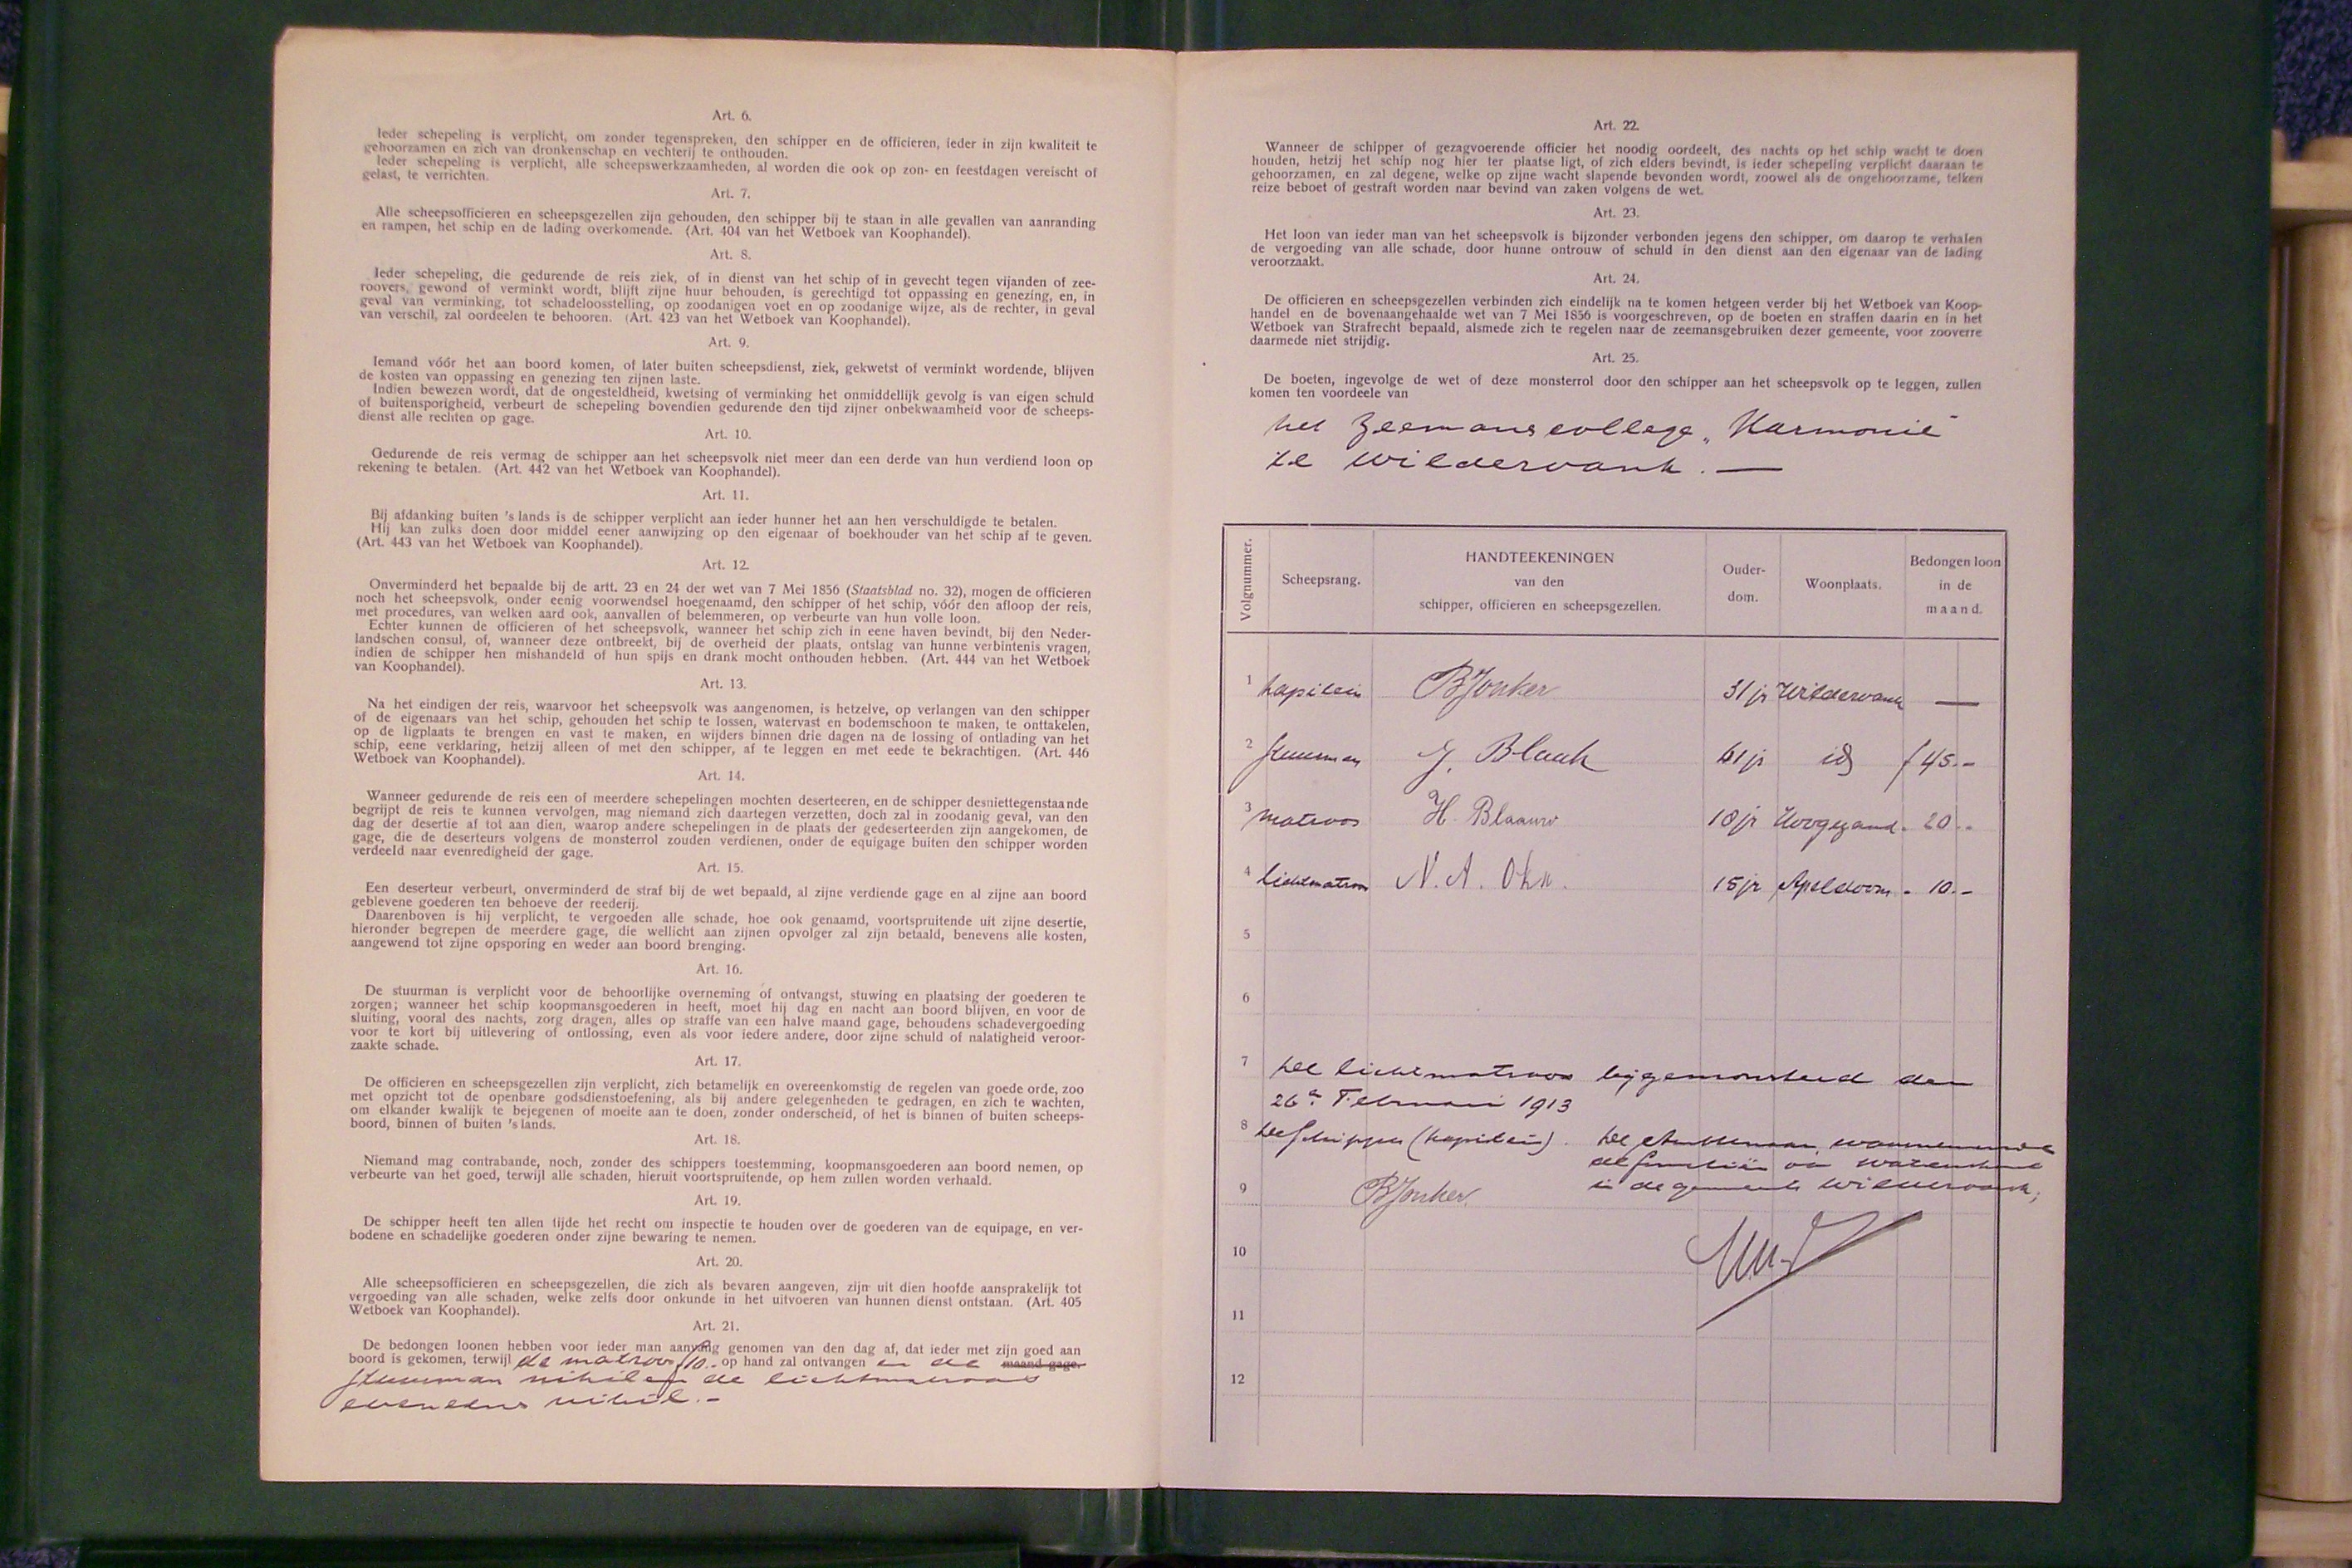 Art. 6.
Ieder schepeling is verplicht, om zonder tegenspreken, den schipper en de officieren, ieder in zijn kwaliteit te
gehoorzamen en zich van dronkenschap en vechterij te onthouden.
Ieder schepeling is verplicht, alle scheepswerkzaamheden, al worden die ook op zon- en feestdagen vereischt of
gelast, te verrichten.
Art. 7.
Alle scheepsofficieren en scheepsgezellen zijn gehouden, den schipper bij te staan in alle gevallen van aanranding
en rampen, het schip en de lading overkomende. (Art. 404 van het Wetboek van Koophandel).
Art. 8.
Ieder schepeling, die gedurende de reis ziek, of in dienst van het schip of in gevecht tegen vijanden of zee-
roovers, gewond of verminkt wordt, blijft zijne huur behouden, is gerechtigd tot oppassing en genezing, en, in
geval van verminking, tot schadeloosstelling, op zoodanigen voet en op zoodanige wijze, als de rechter, in geval
van verschil, zal oordeelen te behooren. (Art. 423 van het Wetboek van Koophandel).
Art. 9.
Iemand vóór het aan boord komen, of later buiten scheepsdienst, ziek, gekwetst of verminkt wordende, blijven
de kosten van oppassing en genezing ten zijnen laste.
Indien bewezen wordt, dat de ongesteldheid, kwetsing of verminking het onmiddellijk gevolg is van eigen schuld
of buitensporigheid, verbeurt de schepeling bovendien gedurende den tijd zijner onbekwaamheid voor de scheeps-
dienst alle rechten op gage.
Art. 10.
Gedurende de reis vermag de schipper aan het scheepsvolk niet meer dan een derde van hun verdiend loon op
rekening te betalen. (Art. 442 van het Wetboek van Koophandel).
Art. 11.
Bij afdanking buiten 's lands is de schipper verplicht aan ieder hunner het aan hen verschuldigde te betalen.
Hij kan zulks doen door middel eener aanwijzing op den eigenaar of boekhouder van het schip af te geven.
(Art. 443 van het Wetboek van Koophandel).
Art. 12.
Onverminderd het bepaalde bij de artt. 23 en 24 der wet van 7 Mei 1856 (Staatsblad no. 32), mogen de officieren
noch het scheepsvolk, onder eenig voorwendsel hoegenaamd, den schipper of het schip, vóór den afloop der reis,
met procedures, van welken aard ook, aanvallen of belemmeren, op verbeurte van hun volle loon.
Echter kunnen de officieren of het scheepsvolk, wanneer het schip zich in eene haven bevindt, bij den Neder-
landschen consul, of, wanneer deze ontbreekt, bij de overheid der plaats, ontslag van hunne verbintenis vragen,
indien de schipper hen mishandeld of hun spijs en drank mocht onthouden hebben. (Art. 444 van het Wetboek
van Koophandel).
Art. 13.
Na het eindigen der reis, waarvoor het scheepsvolk was aangenomen, is hetzelve, op verlangen van den schipper
of de eigenaars van het schip, gehouden het schip te lossen, watervast en bodemschoon te maken, te onttakelen,
op de ligplaats te brengen en vast te maken, en wijders binnen drie dagen na de lossing of ontlading van het
schip, eene verklaring, hetzij alleen of met den schipper, af te leggen en met eede te bekrachtigen. (Art. 446
Wetboek van Koophandel).
Art. 14.
Wanneer gedurende de reis een of meerdere schepelingen mochten deserteeren, en de schipper desniettegenstaande
begrijpt de reis te kunnen vervolgen, mag niemand zich daartegen verzetten, doch zal in zoodanig geval, van den
dag der desertie af tot aan dien, waarop andere schepelingen in de plaats der gedeserteerden zijn aangekomen, de
gage, die de deserteurs volgens de monsterrol zouden verdienen, onder de equipage buiten den schipper worden
verdeeld naar evenredigheid der gage.
Art. 15.
Een deserteur verbeurt, onverminderd de straf bij de wet bepaald, al zijne verdiende gage en al zijne aan boord
geblevene goederen ten behoeve der reederij.
Daarenboven is hij verplicht, te vergoeden alle schade, hoe ook genaamd, voortspruitende uit zijne desertie,
hieronder begrepen de meerdere gage, die wellicht aan zijnen opvolger zal zijn betaald, benevens alle kosten,
aangewend tot zijne opsporing en weder aan boord brenging.
Art. 16.
De stuurman is verplicht voor de behoorlijke overneming of ontvangst, stuwing en plaatsing der goederen te
zorgen; wanneer het schip koopmansgoederen in heeft, moet hij dag en nacht aan boord blijven, en voor de
sluiting, vooral des nachts, zorg dragen, alles op straffe van een halve maand gage, behoudens schadevergoeding
voor te kort bij uitlevering of ontlossing, even als voor iedere andere, door zijne schuld of nalatigheid veroor-
zaakte schade.
Art. 17.
De officieren en scheepsgezellen zijn verplicht, zich betamelijk en overeenkomstig de regelen van goede orde, zoo
met opzicht tot de openbare godsdienstoefening, als bij andere gelegenheden te gedragen, en zich te wachten,
om elkander kwalijk te bejegenen of moeite aan te doen, zonder onderscheid, of het is binnen of buiten scheeps-
boord, binnen of buiten 's lands.
Art. 18.
Niemand mag contrabande, noch, zonder des schippers toestemming, koopmansgoederen aan boord nemen, op
verbeurte van het goed, terwijl alle schaden, hieruit voortspruitende, op hem zullen worden verhaald.
Art. 19.
De schipper heeft ten allen tijde het recht om inspectie te houden over de goederen van de equipage, en ver-
bodene en schadelijke goederen onder zijne bewaring te nemen.
Art. 20.
Alle scheepsofficieren en scheepsgezellen, die zich als bevaren aangeven, zijn uit dien hoofde aansprakelijk tot
vergoeding van alle schaden, welke zelfs door onkunde in het uitvoeren van hunnen dienst ontstaan. (Art. 405
Wetboek van Koophandel).
Art. 21.
De bedongen loonen hebben voor ieder man aanvang genomen van den dag af, dat ieder met zijn goed aan
boord is gekomen, terwijl de matroos f 10.- op hand zal ontvangen en de maand gage.
stuurman nihil en de lichtmatroos
eveneens nihil.-
Art. 22.
Wanneer de schipper of gezagvoerende officier het noodig oordeelt, des nachts op het schip wacht te doen
houden, hetzij het schip nog hier ter plaatse ligt, of zich elders bevindt, is ieder schepeling verplicht daaraan te
gehoorzamen, en zal degene, welke op zijne wacht slapende bevonden wordt, zoowel als de ongehoorzame, telken
reize beboet of gestraft worden naar bevind van zaken volgens de wet.
Art. 23.
Het loon van ieder man van het scheepsvolk is bijzonder verbonden jegens den schipper, om daarop te verhalen
de vergoeding van alle schade, door hunne ontrouw of schuld in den dienst aan den eigenaar van de lading
veroorzaakt.
Art. 24.
De officieren en scheepsgezellen verbinden zich eindelijk na te komen hetgeen verder bij het Wetboek van Koop-
handel en de bovenaangehaalde wet van 7 Mei 1856 is voorgeschreven, op de boeten en straffen daarin en in het
Wetboek van Strafrecht bepaald, alsmede zich te regelen naar de zeemansgebruiken dezer gemeente, voor zooverre
daarmede niet strijdig.
Art. 25.
De boeten, ingevolge de wet of deze monsterrol door den schipper aan het scheepsvolk op te leggen, zullen
komen ten voordeele van
het Zeemanscollege „Harmonie"
te Wildervank. —
Volgnummer. Scheepsrang. HANDTEEKENINGEN van den schipper, officieren en scheepsgezellen. Ouder- dom. Woonplaats. Bedongen loon in de maand.
1 kapitein B Jonker 31 jr Wildervank —
2 stuurman J. Blauk 61 jr id f 45.-
3 matroos H. Blaauw 18 jr Hoogezand - 20.-
4 lichtmatroos N. A. 15 jr Apeldoorn - 10.-
5
6
7 De lichtmatroos bijgemonsterd den
26n Februari 1913
8 De schipper (kapitein). De ambtenaar, waarnemende
de functiën van waterschout
9 B Jonker. in de gemeente Wildervank,
10
11
12